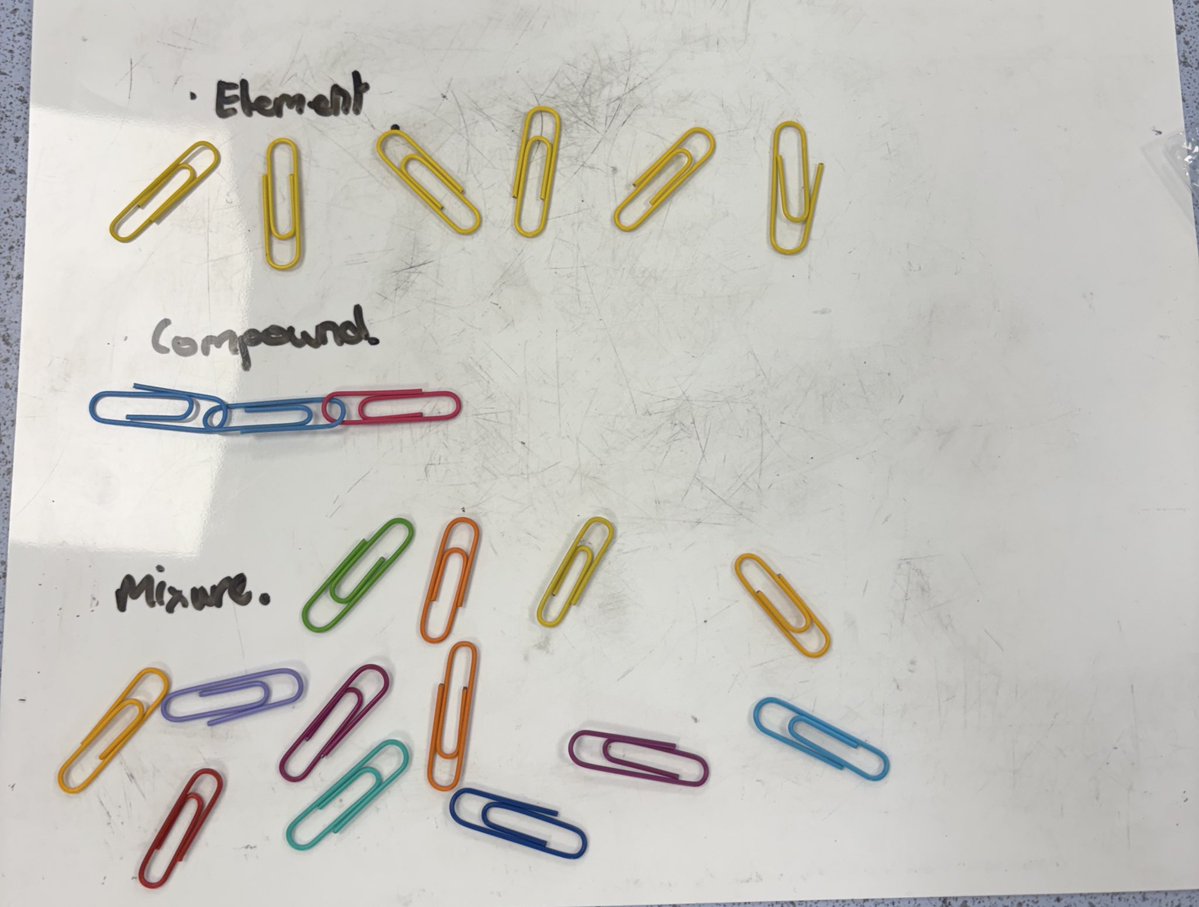 Element
Compound.
Mixure.